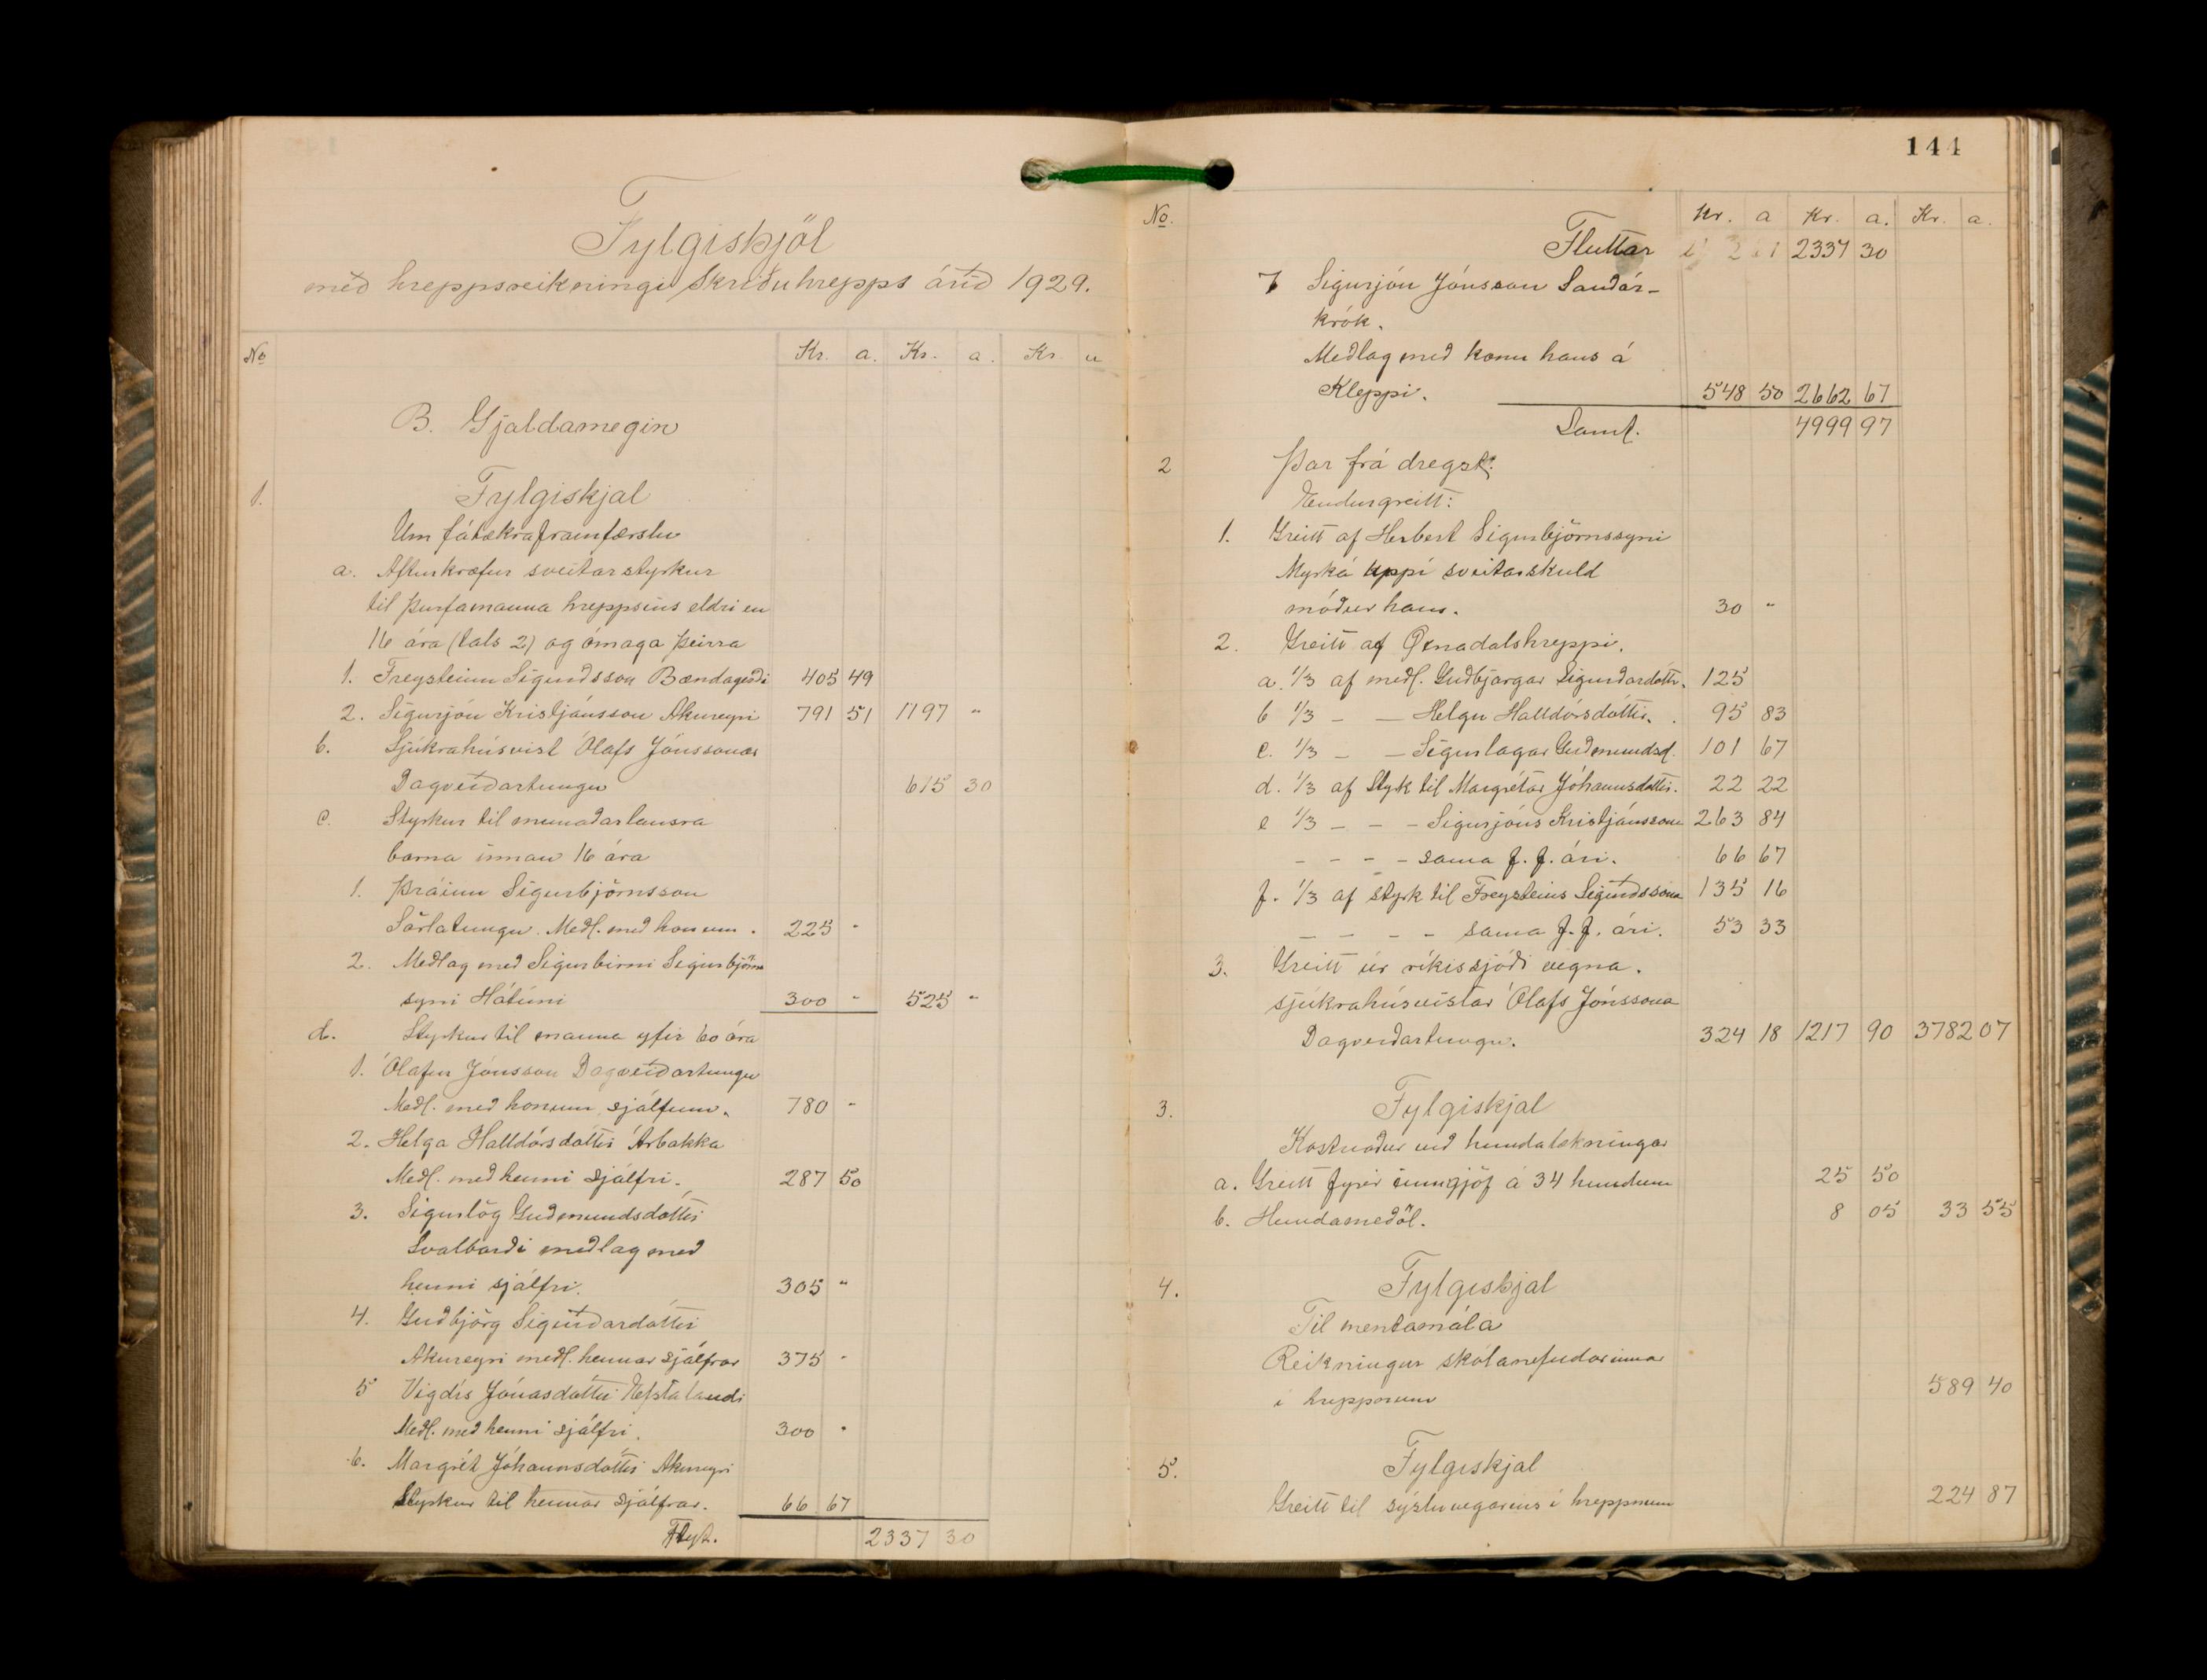 Fylgiskjöl
með hreppsreikningi Skriðuhrepps árið 1929.
No Kr. a. Kr. a. Kr a
B. Gjaldamegin
1. Fylgiskjal
Um fátækraframfærslu
a. Afturkræfur sveitarstyrkur
til þurfamanna hreppsins eldri en
16 ára (tals 2) og ómaga þeirra
1. Freysteinn Sigurðsson Bændagerði 405 49
2. Sigurjón Kristjánsson Akureyri 791 51 1197 "
b. Sjúkrahúsvist Ólafs Jónssonar
Dagverðartungu 615 30
c. Styrkur til munaðarlausra
barna innan 16 ára
1. Þráinn Sigurbjörnsson
Sörlatungu. Meðl. með honum. 225 "
2. Meðlag með Sigurbirni Sigurbjörns
syni Hátúni 300 " 525 "
d. Styrkur til manna yfir 60 ára
1. Ólafur Jónsson Dagverðartungu
Meðl. með honum sjálfum. 780 "
2. Helga Halldórsdóttir Árbakka
Meðl. með henni sjálfri. 287 50
3. Sigurlög Guðmundsdóttir
Svalbarði meðlag með
henni sjálfri. 305 "
4. Guðbjörg Sigurðardóttir
Akureyri meðl. hennar sjálfrar 375 "
5 Vigdís Jónasdóttir Efstalandi
Meðl. með henni sjálfri. 300 "
6. Margrét Jóhannsdóttir Akureyri
Styrkur til hennar sjálfrar. 66 67
Flyt. 2337 30
144
No. Kr. a Kr. a. Kr. a.
Fluttar 2337 30
7 Sigurjón Jónsson Sauðár-
krók.
Meðlag með konu hans á
Kleppi. 548 50 2662 67
Samt. 4999 97
2 Þar frá dregst:
Endurgreitt:
1. Greitt af Herbert Sigurbjörnssyni
Myrká uppí sveitarskuld
móður hans. 30 "
2. Greitt af Öxnadalshreppi.
a. 1/3 af meðl. Guðbjargar Sigurðardóttr. 125
b 1/3 - - Helgu Halldórsdóttir. 95 83
c. 1/3 - - Sigurlagar Guðmundsd. 101 67
d. 1/3 af Styrk til Margrétar Jóhannsdóttir. 22 22
e 1/3 - - - Sigurjóns Kristjánssonar 263 84
- - - - sama f. f. ári. 66 67
f. 1/3 af styrk til Freysteins Sigurðssonar 135 16
- - - - sama f. f. ári. 53 33
3. Greitt úr ríkissjóði vegna.
sjúkrahúsvistar Ólafs Jónssonar
Dagverðartungu. 324 18 1217 90 3782 07
3. Fylgiskjal
Kostnaður við hundalækningar
a. Greitt fyrir inngjöf á 34 hundum 25 50
b. Hundameðöl. 8 05 33 55
4. Fylgiskjal
Til mentamála
Reikningur skólanefndarinnar
í hreppnum 589 40
5. Fylgiskjal
Greitt til sýsluvegarins í hreppnum 224 87